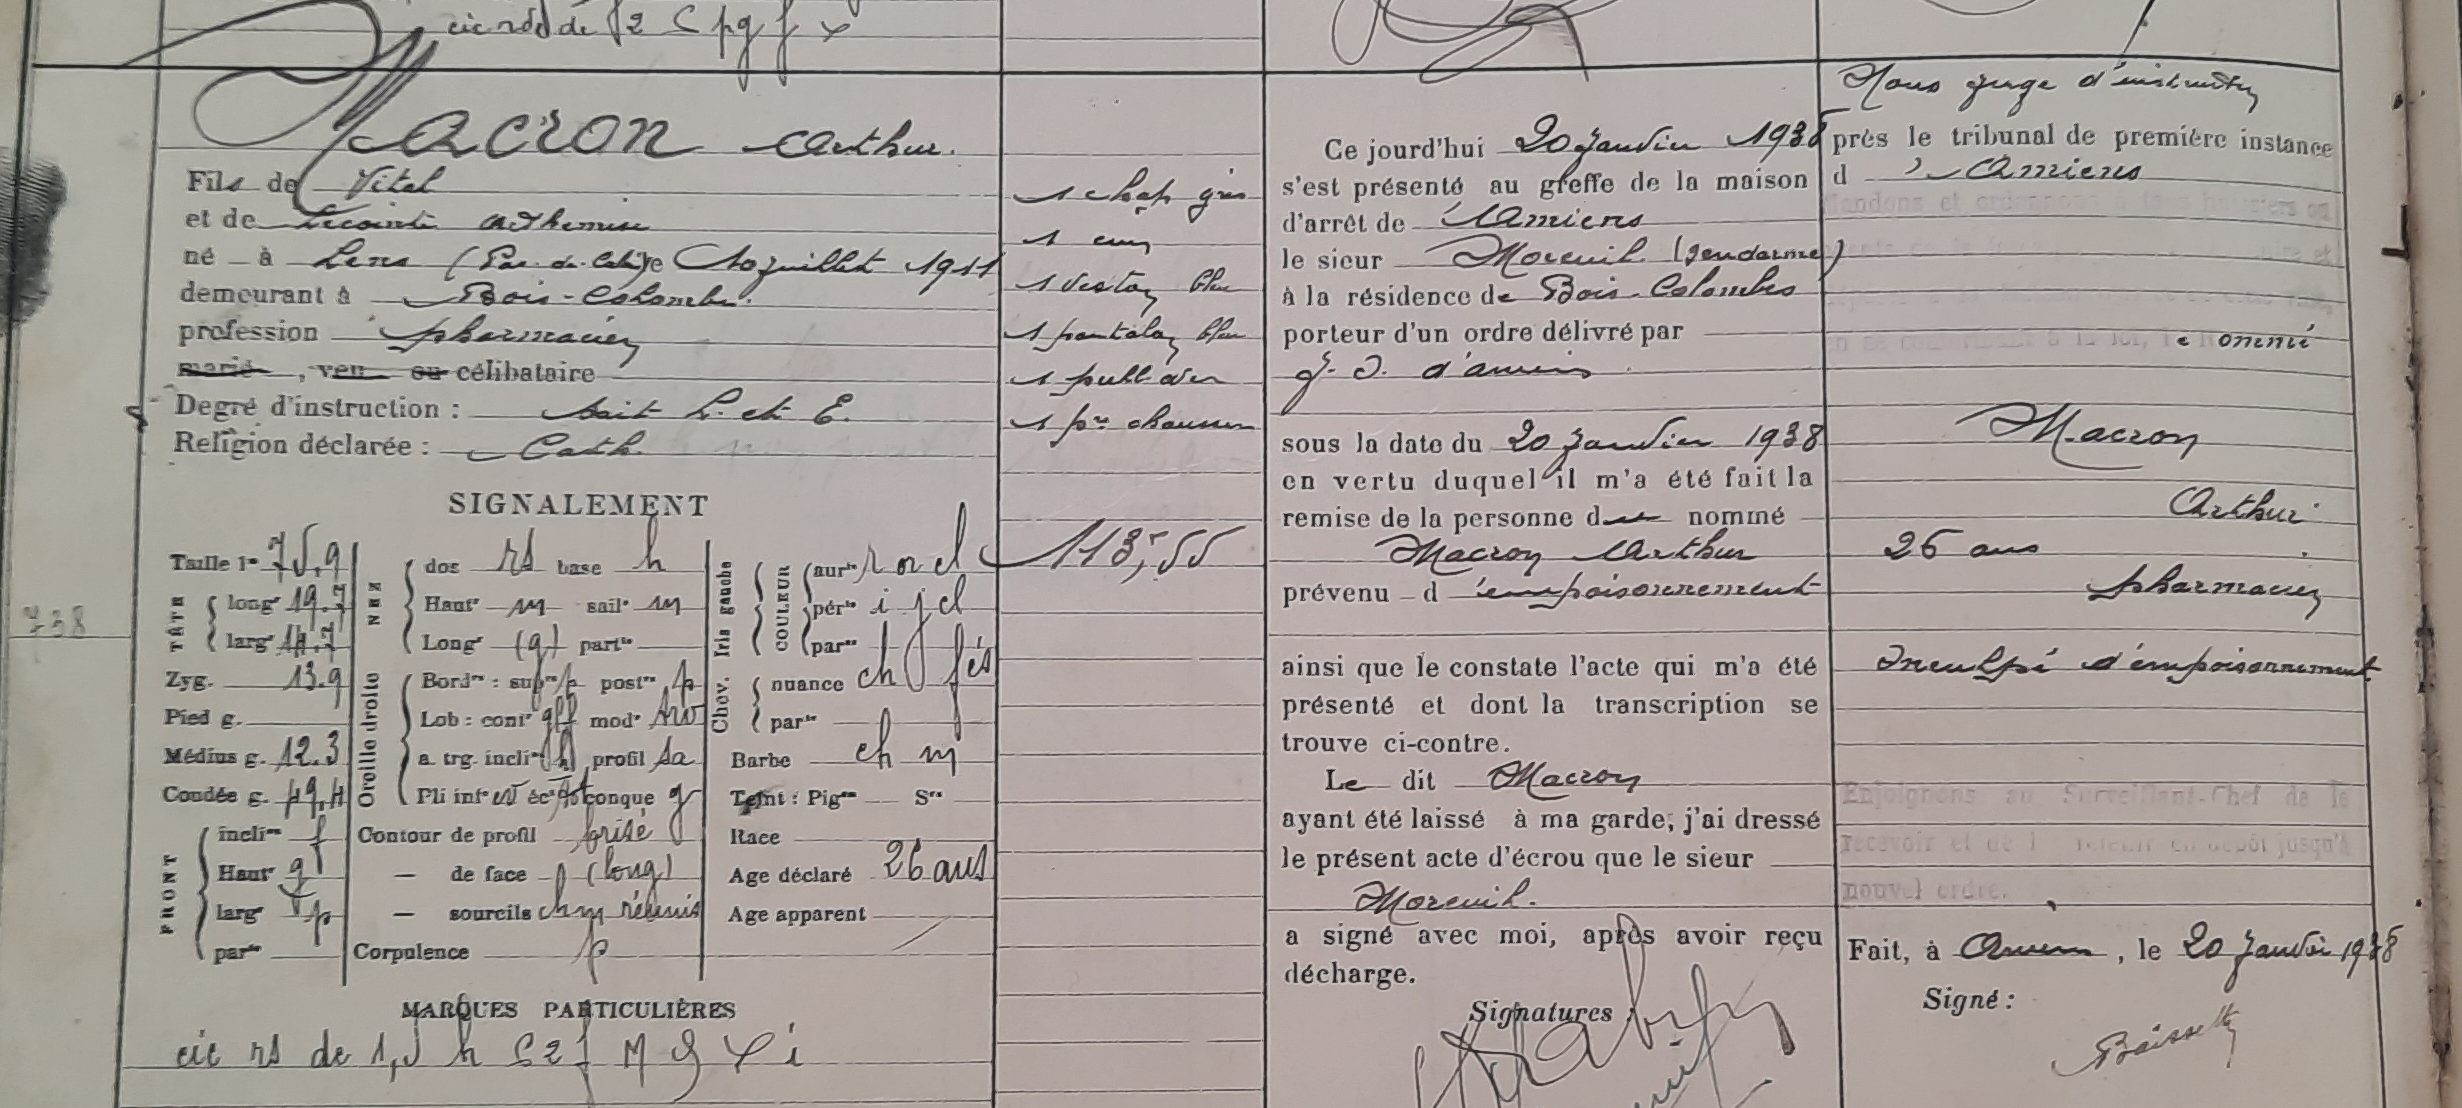 cic rsd de f2 C pg f x
Macron Arthur.
Fils de Vital
et de Lecointe Arthemise
né à Lens (Pas-de-Calais) le 10 juillet 1911
demeurant à Bois-Colombes.
profession pharmacien
marié, veu ou célibataire
Degré d'instruction : Sait L. et E.
Religion déclarée : Cath.
1 chap gris
1 veston bleu
1 pantalon bleu
1 pull over
1 pre chaussures
113,55
738
SIGNALEMENT
Taille 1m 75,9
TÊTE
longr 19.7
largr
Zyg. 13.9
Pied g.
Médius g. 12.3
Coudée g. 49,4
FRONT
inclion f
Hautr g
largr p
parté
NEZ
dos rs base h
Hautr m saile m
Longr (g) parté
Oreille droite
Bordre : supre p postre p
Lob : contr modé
a. trg. inclion profil sa
Pli infr éct conque g
Contour de profil brisé
— de face (long)
— sourcils ch m réunis
Corpulence p
Iris gauche
COULEUR
aurle r or cl
périe i j cl
parté
Chev.
nuance ch f
parté
Barbe ch m
Teint : Pigon Sre
Race
Age déclaré 26 ans
Age apparent
MARQUES PARTICULIÈRES
cic rs de 1,5
Ce jourd'hui 20 Janvier 1938
s'est présenté au greffe de la maison
d'arrêt de Amiens
le sieur Moreuil (gendarme)
à la résidence de Bois-Colombes
porteur d'un ordre délivré par
J. I. d'Amiens
sous la date du 20 Janvier 1938
en vertu duquel il m'a été fait la
remise de la personne du nommé
Macron Arthur
prévenu d 'empoisonnement
ainsi que le constate l'acte qui m'a été
présenté et dont la transcription se
trouve ci-contre.
Le dit Macron
ayant été laissé à ma garde, j'ai dressé
le présent acte d'écrou que le sieur
Moreuil.
a signé avec moi, après avoir reçu
décharge.
Signatures :
Nous juge d'instruction
près le tribunal de première instance
d 'Amiens
Mandons et ordonnons à tous huissiers ou
en se conformant à la loi, le nommé
Macron
Arthur
26 ans
pharmacien
Inculpé d'empoisonnement
Enjoignons au Surveillant-Chef de le
recevoir et de l retenir en dépôt jusqu'à
nouvel ordre.
Fait, à Amiens, le 20 Janvier 1938
Signé :